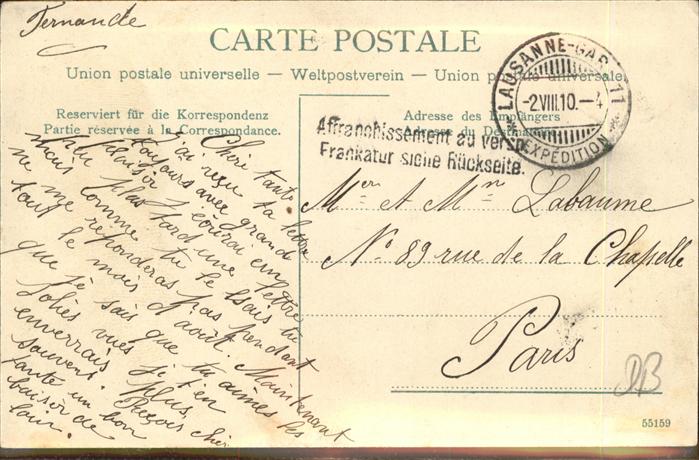 Fernande
CARTE POSTALE
Union postale universelle — Weltpostverein — Union postale universale
Reserviert für die Korrespondenz
Partie réservée à la Correspondance.
Adresse des Empfängers
Adresse du Destinataire
LAUSANNE-GARE 11
-2.VIII.10.-4
* EXPÉDITION *
Affranchissement au verso.
Frankatur siehe Rückseite.
Chère tante
J'ai reçu ta lettre
toujours avec grand
plaisir j'écrirai une
peu plus tard une lettre
mais comme tu le sais tu
ne me reponderas pas pendant
tout le mois d'août. Maintenant
que je sais que tu aimes les
jolies vues je t'en
enverrais plus
souvent. Reçois chère
tante un bon
baiser de
loin.
Mer et Mme Labaume
No 89 rue de la Chapelle
Paris
DB
55159